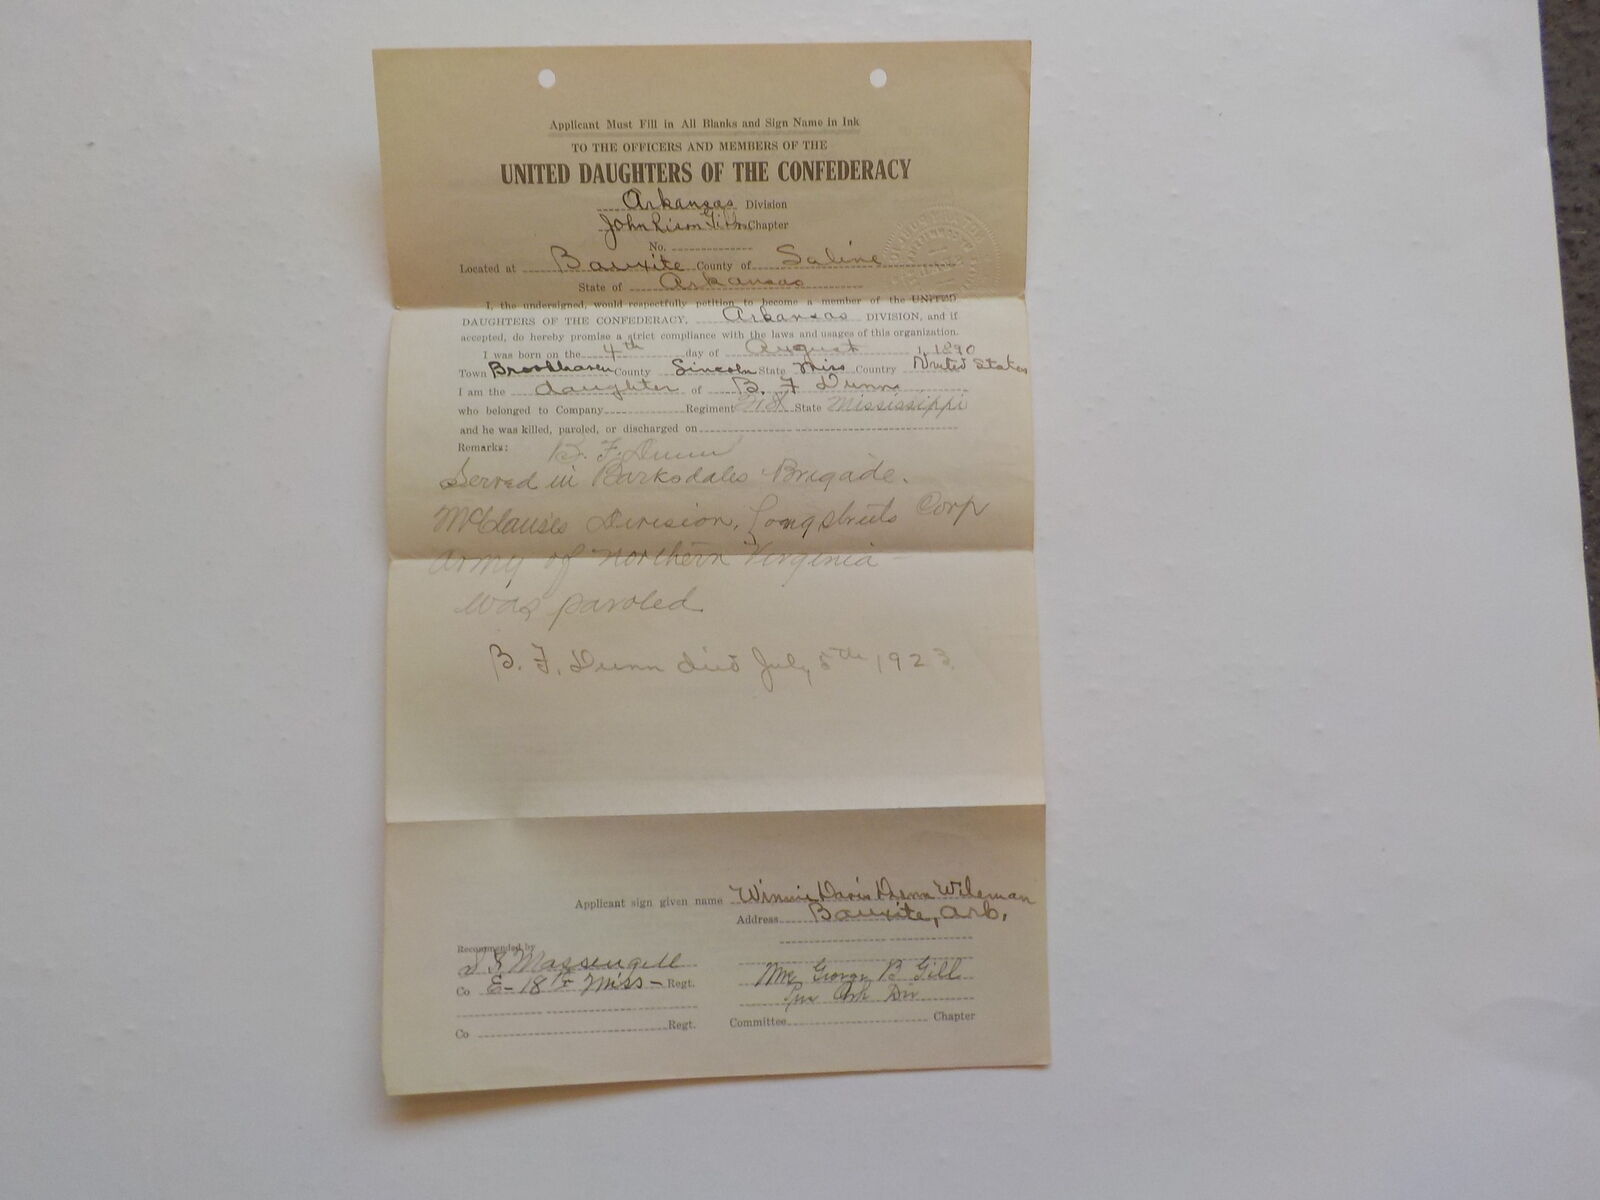 Applicant Must Fill in All Blanks and Sign Name in Ink
TO THE OFFICERS AND MEMBERS OF THE
UNITED DAUGHTERS OF THE CONFEDERACY
Arkansas Division
John Chapter
No.
Located at Bauxite County of Saline
State of Arkansas
I, the undersigned, would respectfully petition to become a member of the UNITED
DAUGHTERS OF THE CONFEDERACY, Arkansas DIVISION, and if
accepted, do hereby promise a strict compliance with the laws and usages of this organization.
I was born on the 4th day of August 1, 1890
Town Brookhaven County Lincoln State Miss Country United States
I am the daughter of B. F Dunn
who belonged to Company Regiment State Mississippi
and he was killed, paroled, or discharged on
Remarks: B. F. Dunn
Served in Barksdales Brigade.
Division, Longstreets Corp
Army of Northern Virginia
was paroled
B. F. Dunn died July 5th 1923
Applicant sign given name Winnie Davis Dunn Wileman
Address Bauxite, Ark.
Recommended by
Massengill
Co E- 18th Miss- Regt.
Mrs George B Gill
Ark Div
Co Regt.
Committee Chapter